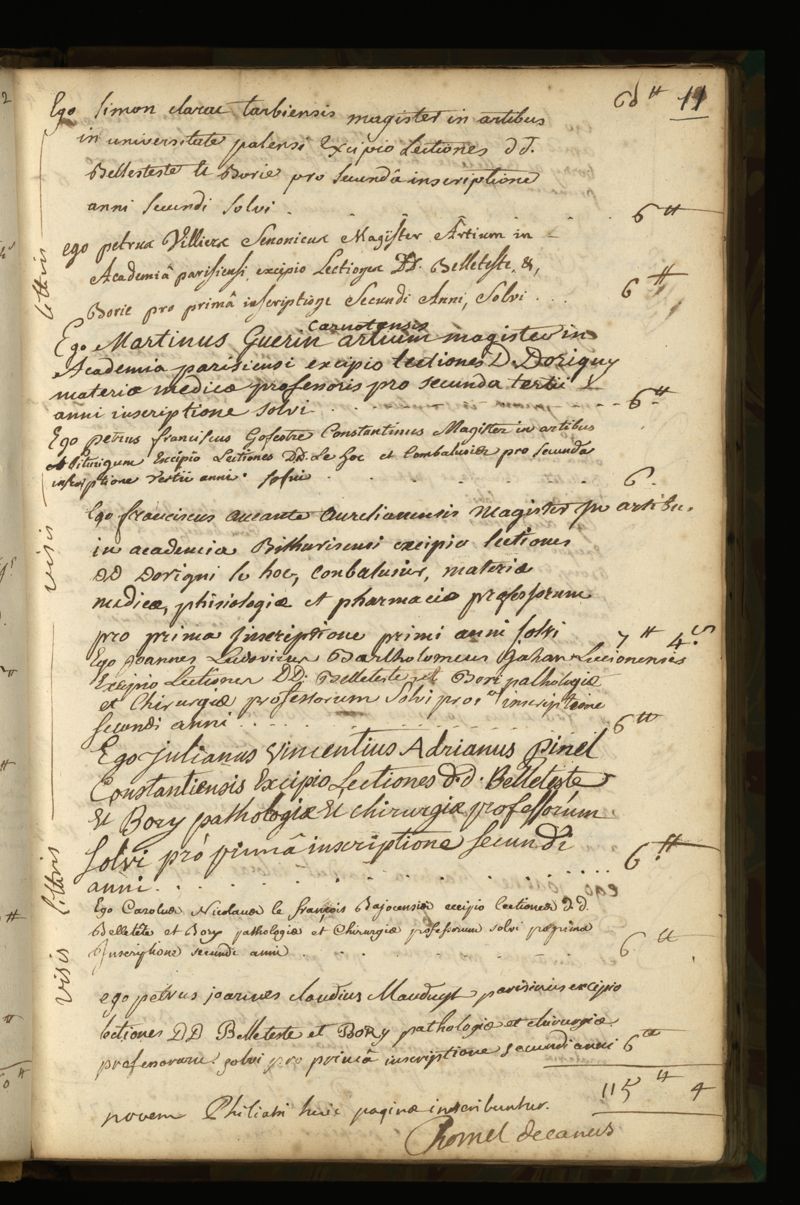 60 ₶ 11
Ego Simon clarac tarbiensis magister in artibus
in universitate palensi Excipio Lectiones dd.
Bellesteste et Borie pro secundâ inscriptione
anni secundi solvi . 6 ₶
ego petrus Villiers Senonicus Magister Artium in
Academiâ parisiensi excipio Lectiones DD. Belleteste, &,
Borie pro primâ inscriptione Secundi Anni, Solvi . . . 6 ₶
Carnotensis
Ego Martinus Guerin artium magister in
Academia parisiensi excipio lectiones D. Dorigny
materiæ medicæ professoris pro secunda tertii
anni inscriptione solvi . . . 6 ₶
Ego petrus franciscus Constantinus Magister in artibus
Biturigum Excipio Lectiones DD. Le hoc et Combalusier pro secunda
inscriptione tertii anni. solvi . . . 6.
Ego franciscus Aurelianensis Magister in artibus
in academia Bithurisensi excipio lectiones
DD Dorigni le hoc, Conbalusier, materiæ
medicæ, phisiologiæ et pharmaciæ professorum
pro prima Inscriptione primi anni solvi 7 ₶ 4 s
Ego Joannes Ludovicus Bartholomeus Gahan Lucionensis
Excipio Lectiones DD. Belleteste et Bori pathologiæ
et Chirurgiæ professorum Solvi pro 1â inscriptione
secundi anni . . . 6 ₶
Ego Julianus Vincentius Adrianus Pinel
Constantiensis Excipio Lectiones d.d. Belleteste
Et Bory pathologiæ Et chirurgiæ professorum
Solvi pro primâ inscriptione secundi
anni . . . 6 ₶
Ego Carolus Nicolaus le françois Bajocensis excipio lectiones d.d.
Belleteste et Bory pathologiæ et Chirurgiæ professorum solvi pro prima
Inscriptione secundi anni . . . 6 ₶
ego petrus joannes claudius Mauduyt parisinus excipio
lectiones DD Belleteste et Bory pathologiæ et chirurgiæ
professorum solvi pro primâ inscriptione secundi anni 6 ₶
115 ₶ 4
novem Philiatri huic paginæ inscribuntur.
Chomel decanus
visis litteris
visis litteris